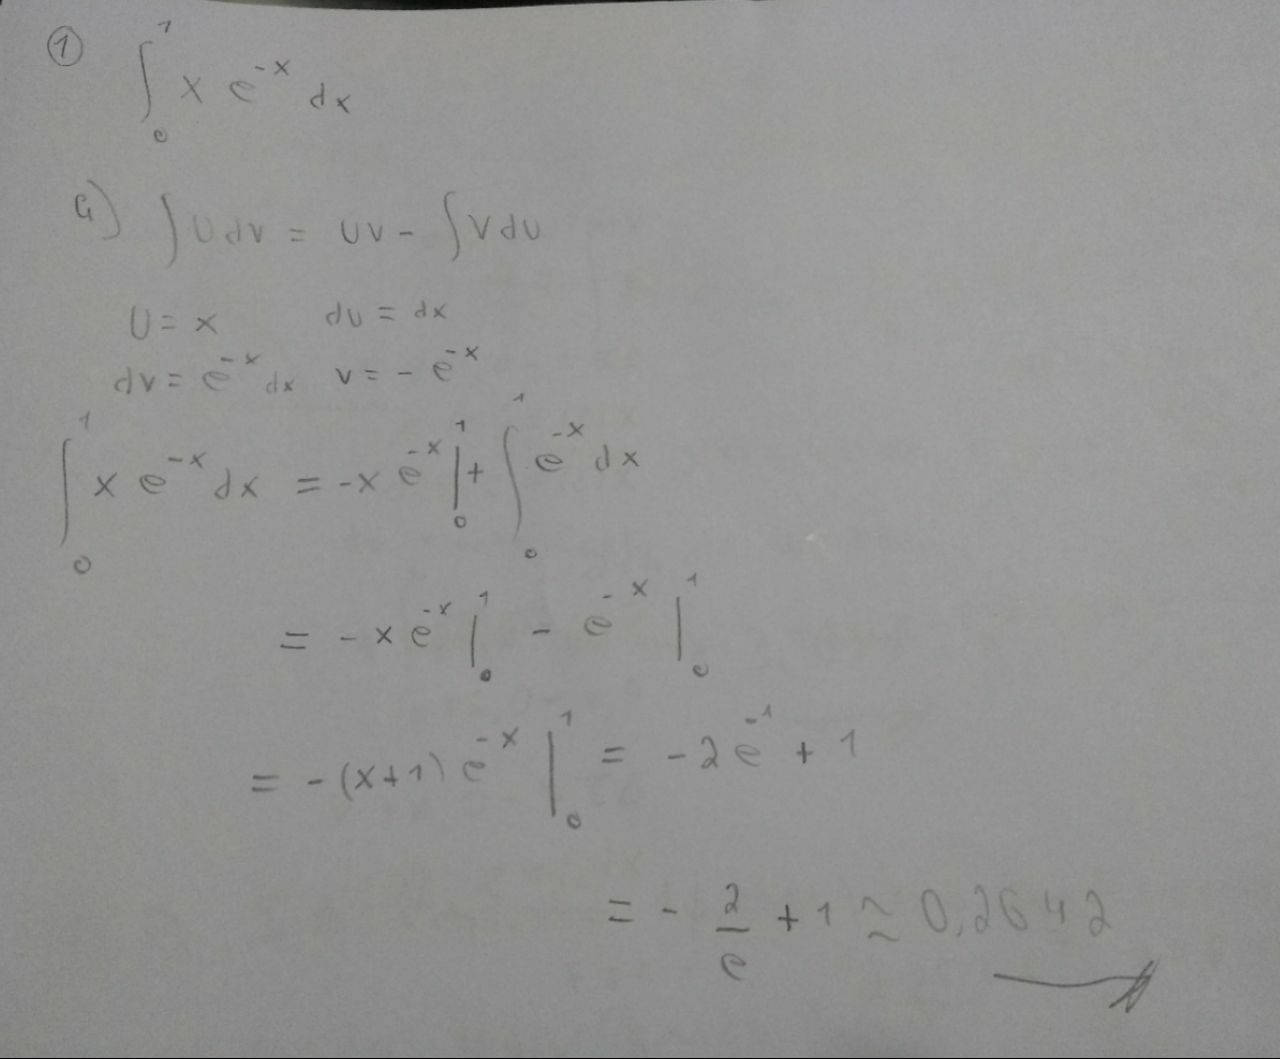 ① ∫₀¹ x e^{-x} dx
a) ∫ U dV = UV - ∫ V dU
U = x dU = dx
dV = e^{-x} dx V = - e^{-x}
∫₀¹ x e^{-x} dx = -x e^{-x} |₀¹ + ∫₀¹ e^{-x} dx
= - x e^{-x} |₀¹ - e^{-x} |₀¹
= - (x+1) e^{-x} |₀¹ = - 2 e^{-1} + 1
= - 2/e + 1 ≈ 0,2642